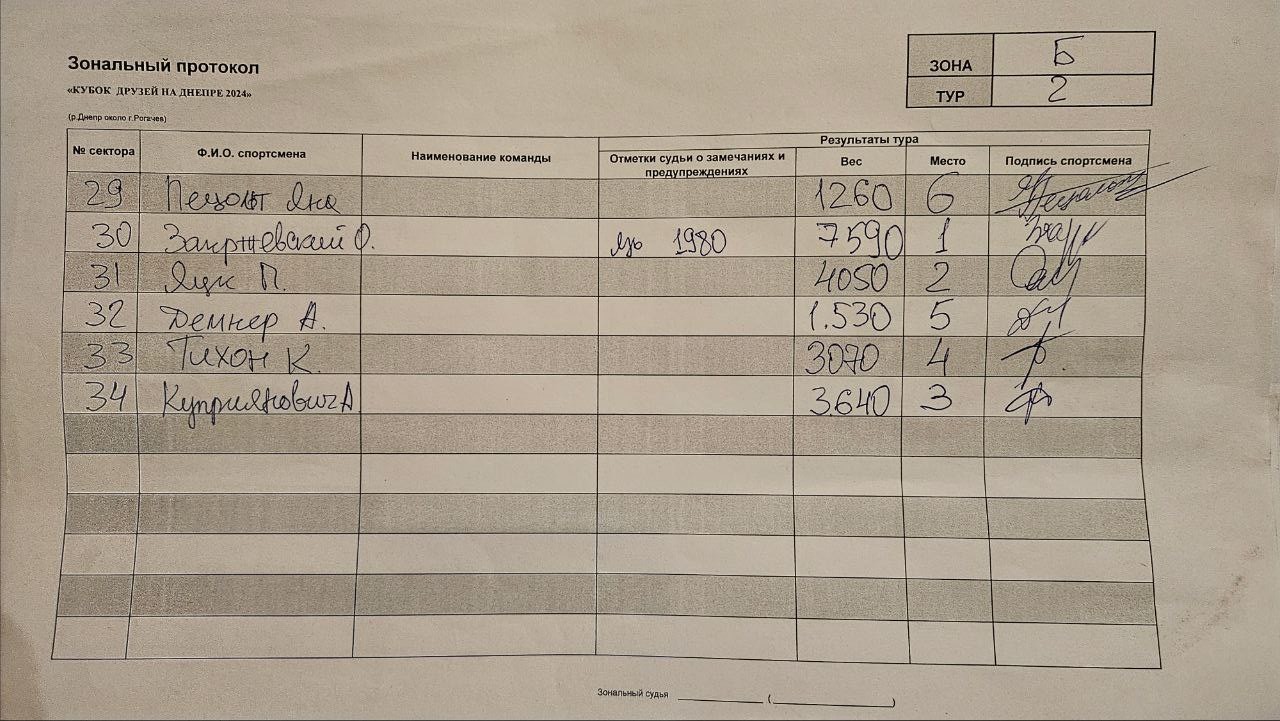 Зональный протокол
«КУБОК ДРУЗЕЙ НА ДНЕПРЕ 2024»
(р.Днепр около г.Рогачев)
ЗОНА Б
ТУР 2
№ сектора Ф.И.О. спортсмена Наименование команды Результаты тура
Отметки судьи о замечаниях и предупреждениях Вес Место Подпись спортсмена
29 Яна 1260 6
30 Закржевский О. язь 1980 7590 1
31 Яцк П. 4050 2
32 Демнер А. 1.530 5
33 Тихон К. 3070 4
34 Куприянович А 3.640 3
Зональный судья __________ (______________)